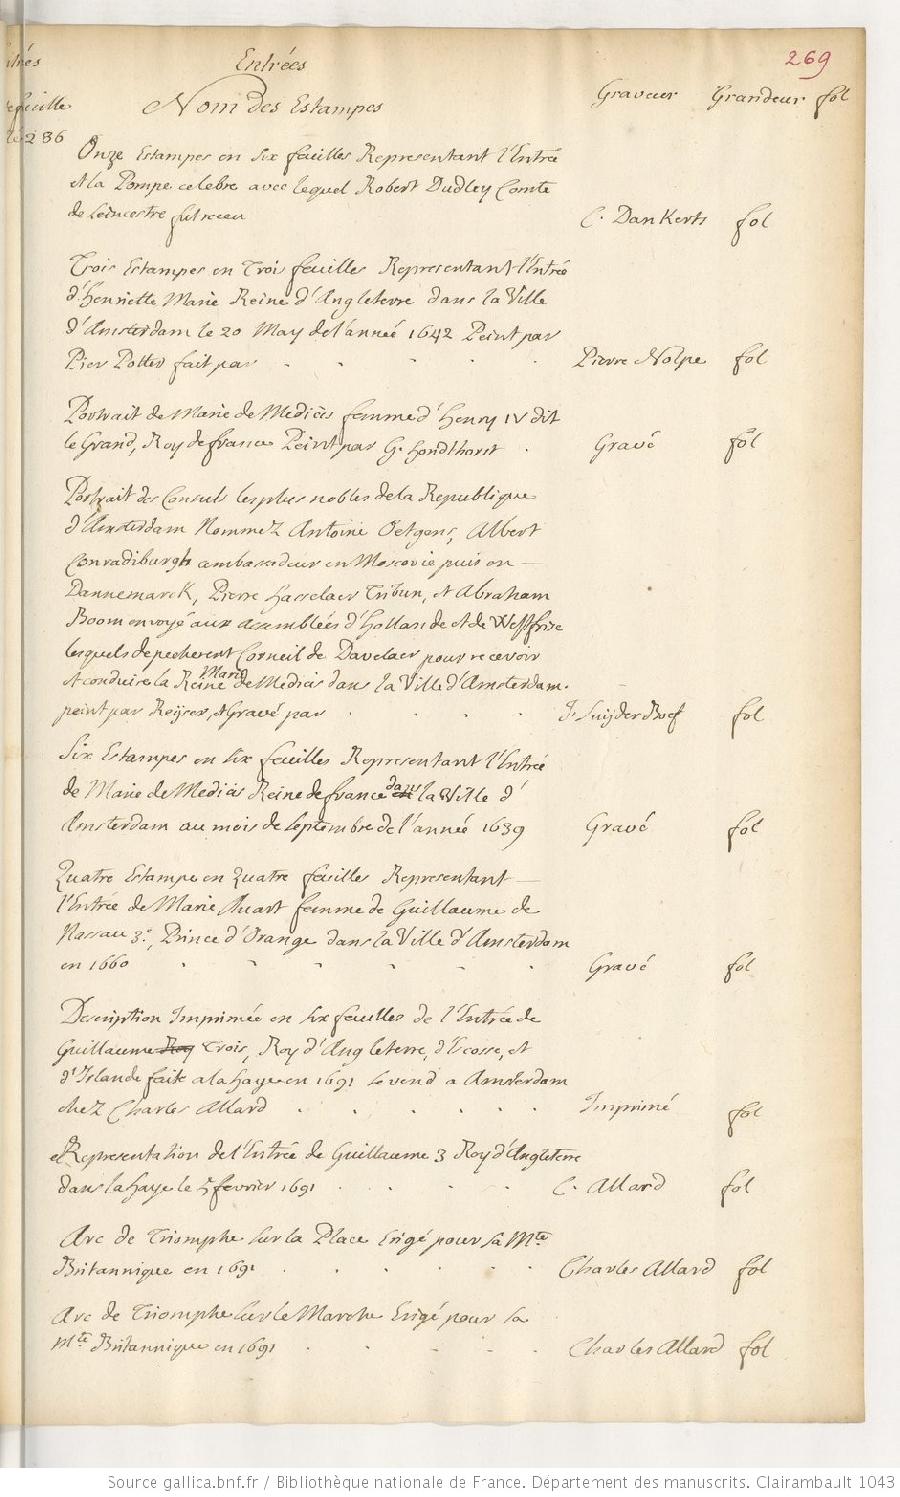 Entrées
269
Nom des Estampes Graveur Grandeur fol
236
Onze Estampes en six feuilles Representant l'Entrée
et la Pompe celebre avec lequel Robert Dudley Comte
de Leincestre fut receu C. Dankerts fol
Trois Estampes en Trois feuilles Representant l'Entrée
d'Henriette Marie Reine d'Angleterre dans la Ville
d'Amsterdam le 20 May de l'année 1642 Peint par
Pier Potter fait par Pierre Nolpe fol
Portrait de Marie de Medicis femme d'Henry IV dit
le Grand, Roy de france Peint par G. hondthorst Gravé fol
Portrait des Consuls les plus nobles de la Republique
d'Amsterdam Nommez Antoine Oetgens, Albert
Conradiburgh ambassadeur en Moscovie puis en
Dannemarck, Pierre hasselaer Tribun, et Abraham
Boom envoyé aux assemblées d'Hollande et de Westfrise
lesquels depecherent Corneil de Davelaer pour recevoir
et conduire la Reine Marie de Medicis dans la Ville d'Amsterdam.
peint par Keijser, et Gravé par J. SuijderHoef fol
Six Estampes en six feuilles Representant l'Entrée
de Marie de Medicis Reine de france dans la Ville d'
Amsterdam au mois de Septembre de l'année 1639 Gravé fol
Quatre Estampe en Quatre feuilles Representant
l'Entrée de Marie Stuart femme de Guillaume de
Nassau 3.e, Prince d'Orange dans la Ville d'Amsterdam
en 1660 Gravé fol
Description Imprimée en six feuilles de l'Entrée de
Guillaume Roy Trois, Roy d'Angleterre, d'Ecosse, et
d'Irlande fait a la haye en 1691 se vend a Amsterdam
chez Charles Allard Imprimé fol
Representation de l'Entrée de Guillaume 3 Roy d'Angleterre
dans la haye le 5 fevrier 1691 C. Allard fol
Arc de Triomphe sur la Place Erigé pour sa Mte
Britannique en 1691 Charles Allard fol
Arc de Triomphe sur le Marche Erigé pour sa
Mte Britannique en 1691 Charles Allard fol
Source gallica.bnf.fr / Bibliothèque nationale de France. Département des manuscrits. Clairambault 1043